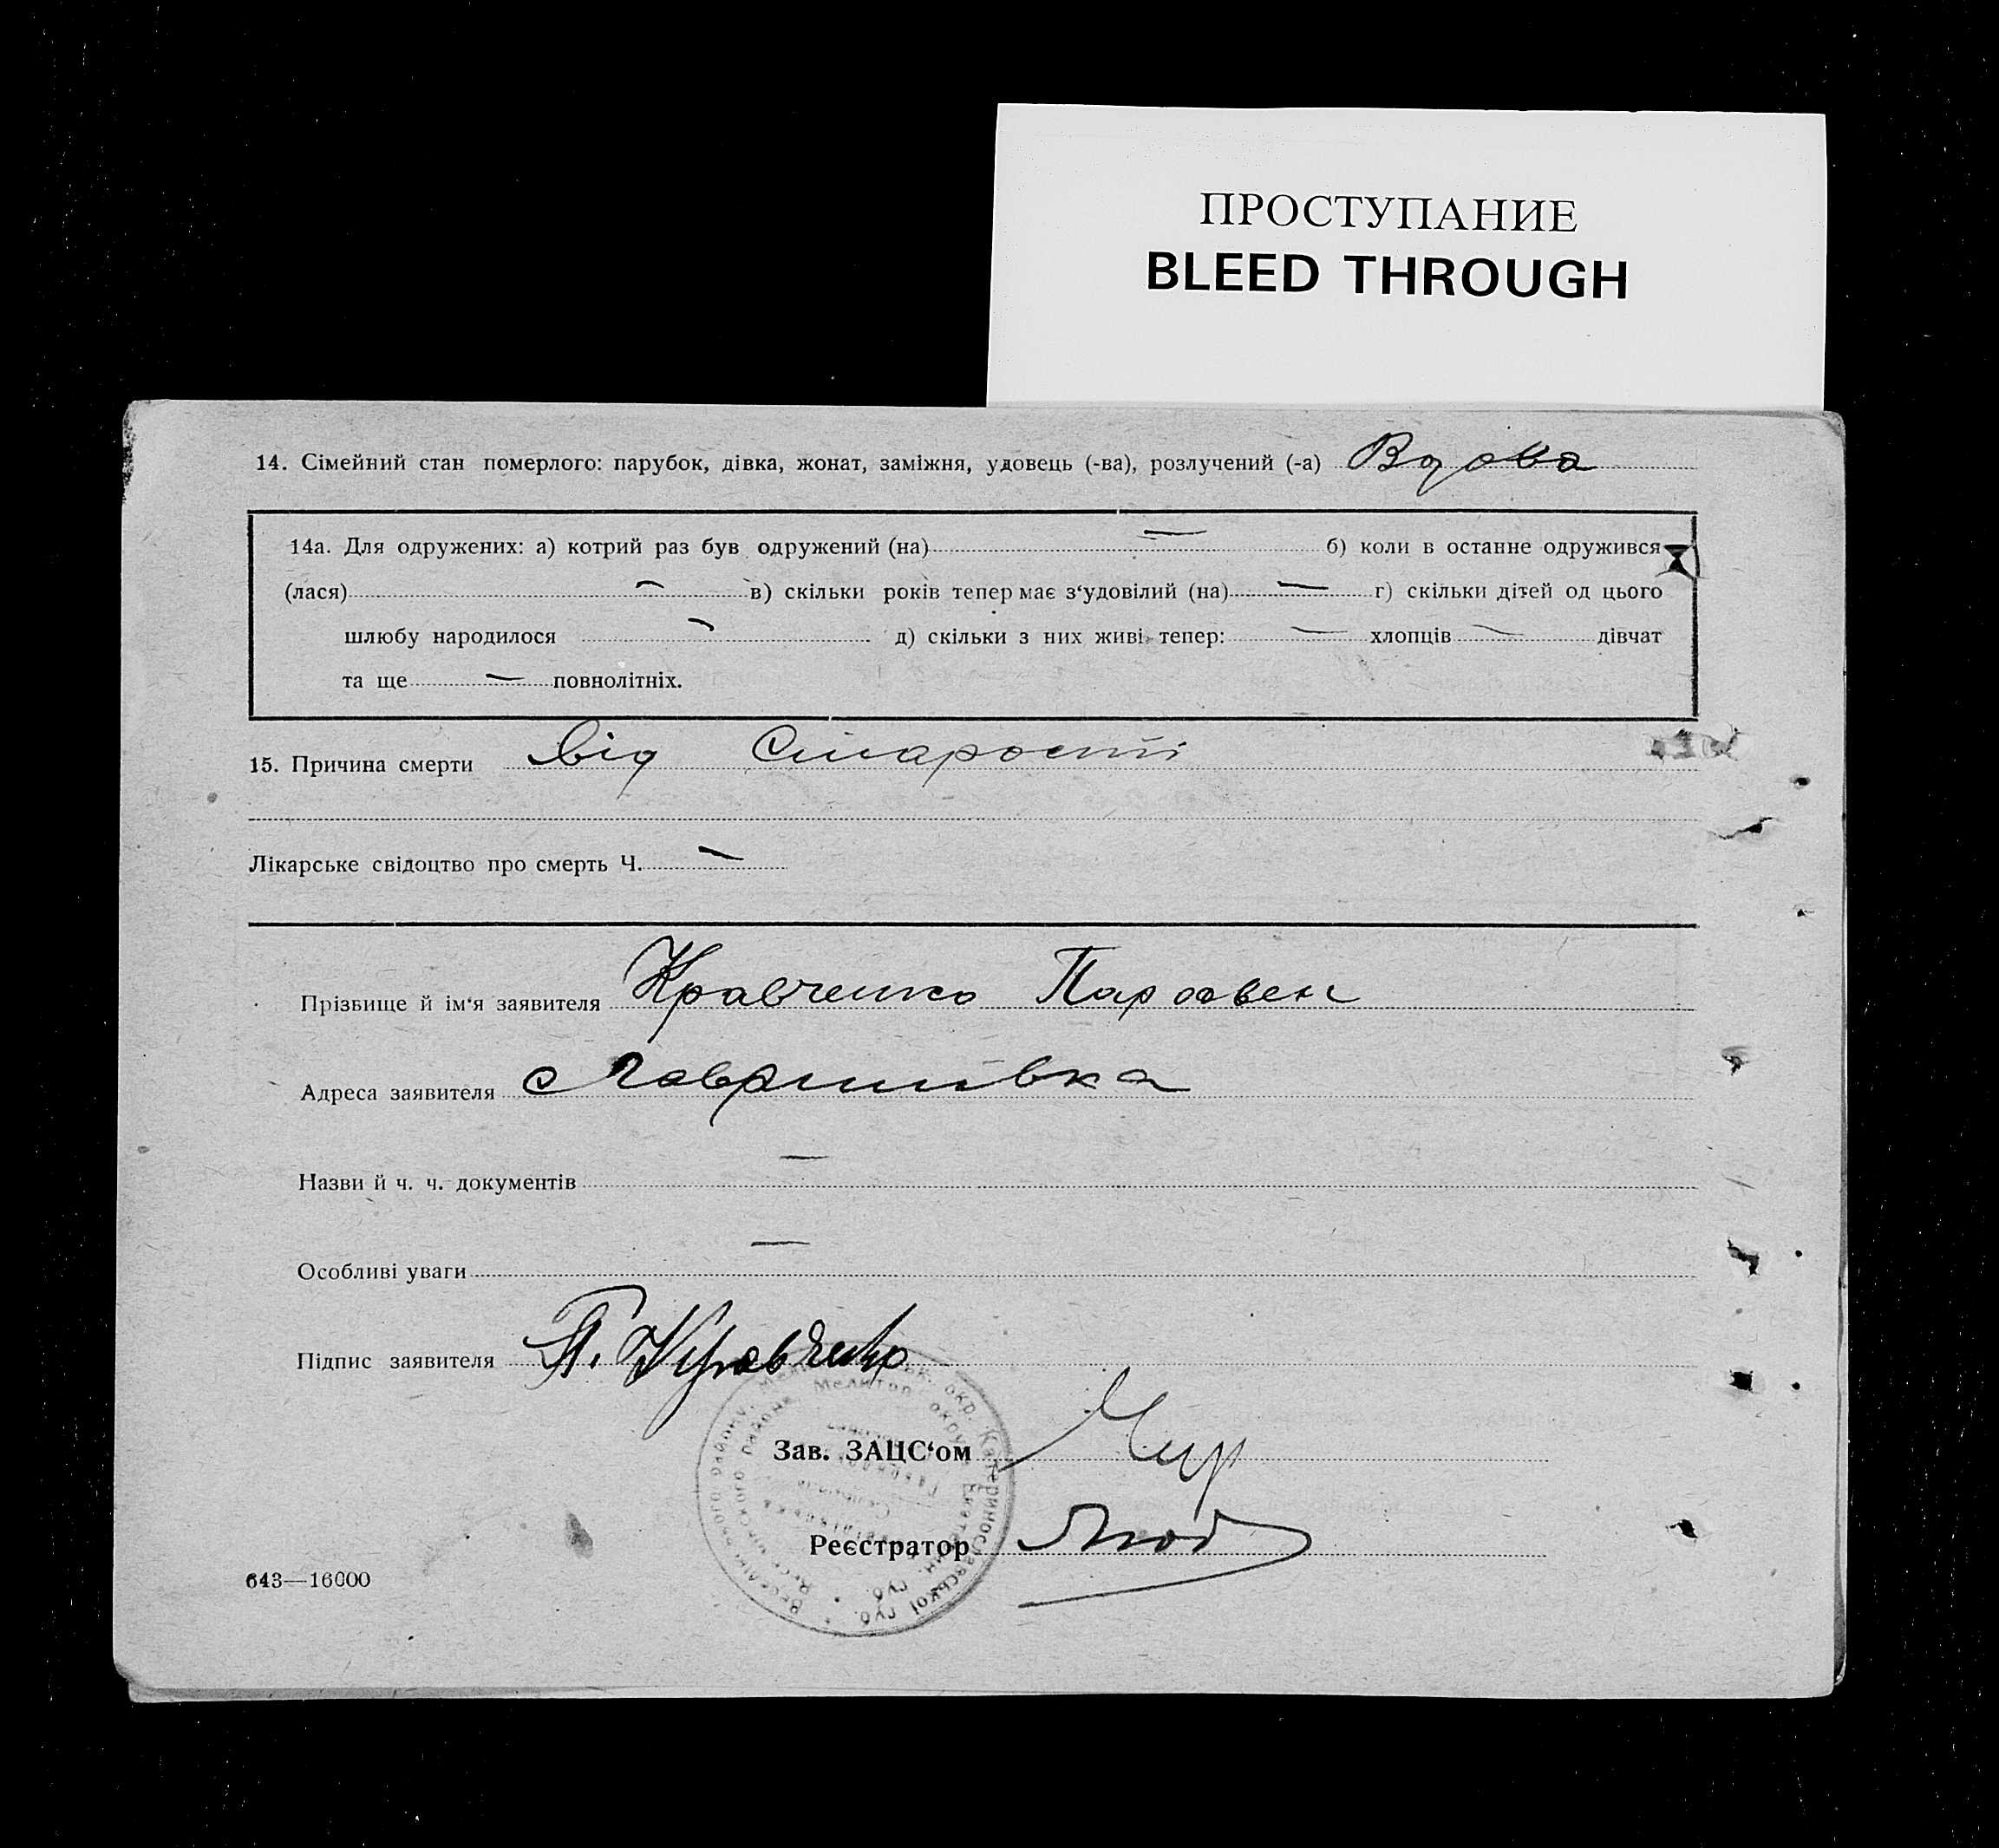 ПРОСТУПАНИЕ
BLEED THROUGH
14. Сімейний стан померлого: парубок, дівка, жонат, заміжня, удовець (-ва), розлучений (-а) Вдова
14а. Для одружених: а) котрий раз був одружений (на) — б) коли в останнє одружився
(лася) — в) скільки років тепер має з‘удовілий (на) — г) скільки дітей од цього
шлюбу народилося — д) скільки з них живі тепер: — хлопців — дівчат
та ще — повнолітніх.
15. Причина смерти Від Старости
Лікарське свідоцтво про смерть Ч. —
Прізвище й ім‘я заявителя Кравченко Парфвен
Адреса заявителя с Гаврилівка
Назви й ч. ч. документів —
Особливі уваги —
Підпис заявителя П. Кравченко
Зав. ЗАЦС‘ом
Реєстратор
643—16000